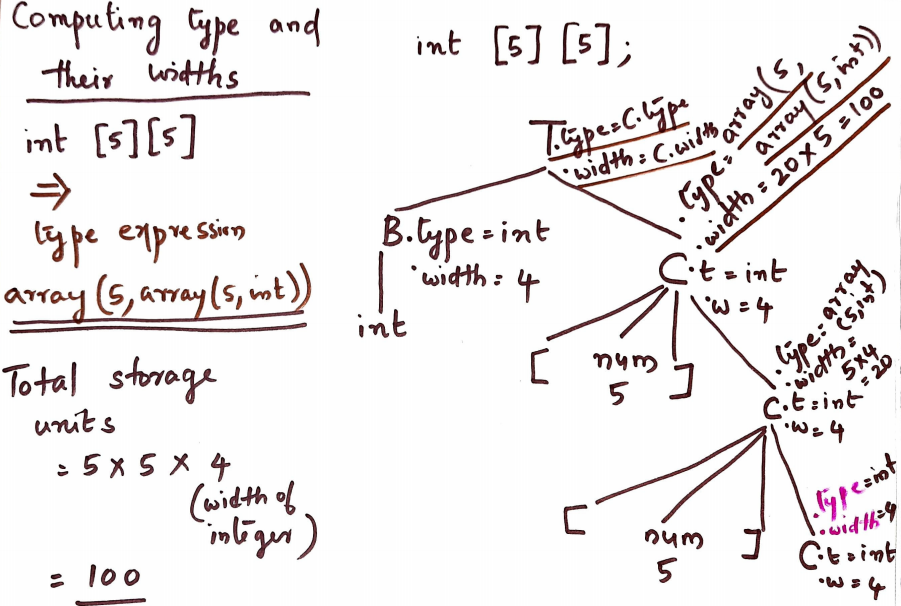 Computing type and
their widths
int [5][5]
⇒
type expression
array (5, array(5, int))
Total storage
units
= 5 × 5 × 4
(width of
integer)
= 100
int [5] [5];
T.type = C.type
.width = C.width
.type = array(5,
array(5, int))
.width = 20 × 5 = 100
B.type = int
.width = 4
int
C.t = int
.w = 4
[ num ]
5
.type = array
(5, int)
.width =
5×4
= 20
C.t = int
.w = 4
[ num ]
5
.type = int
.width = 4
C.t = int
.w = 4